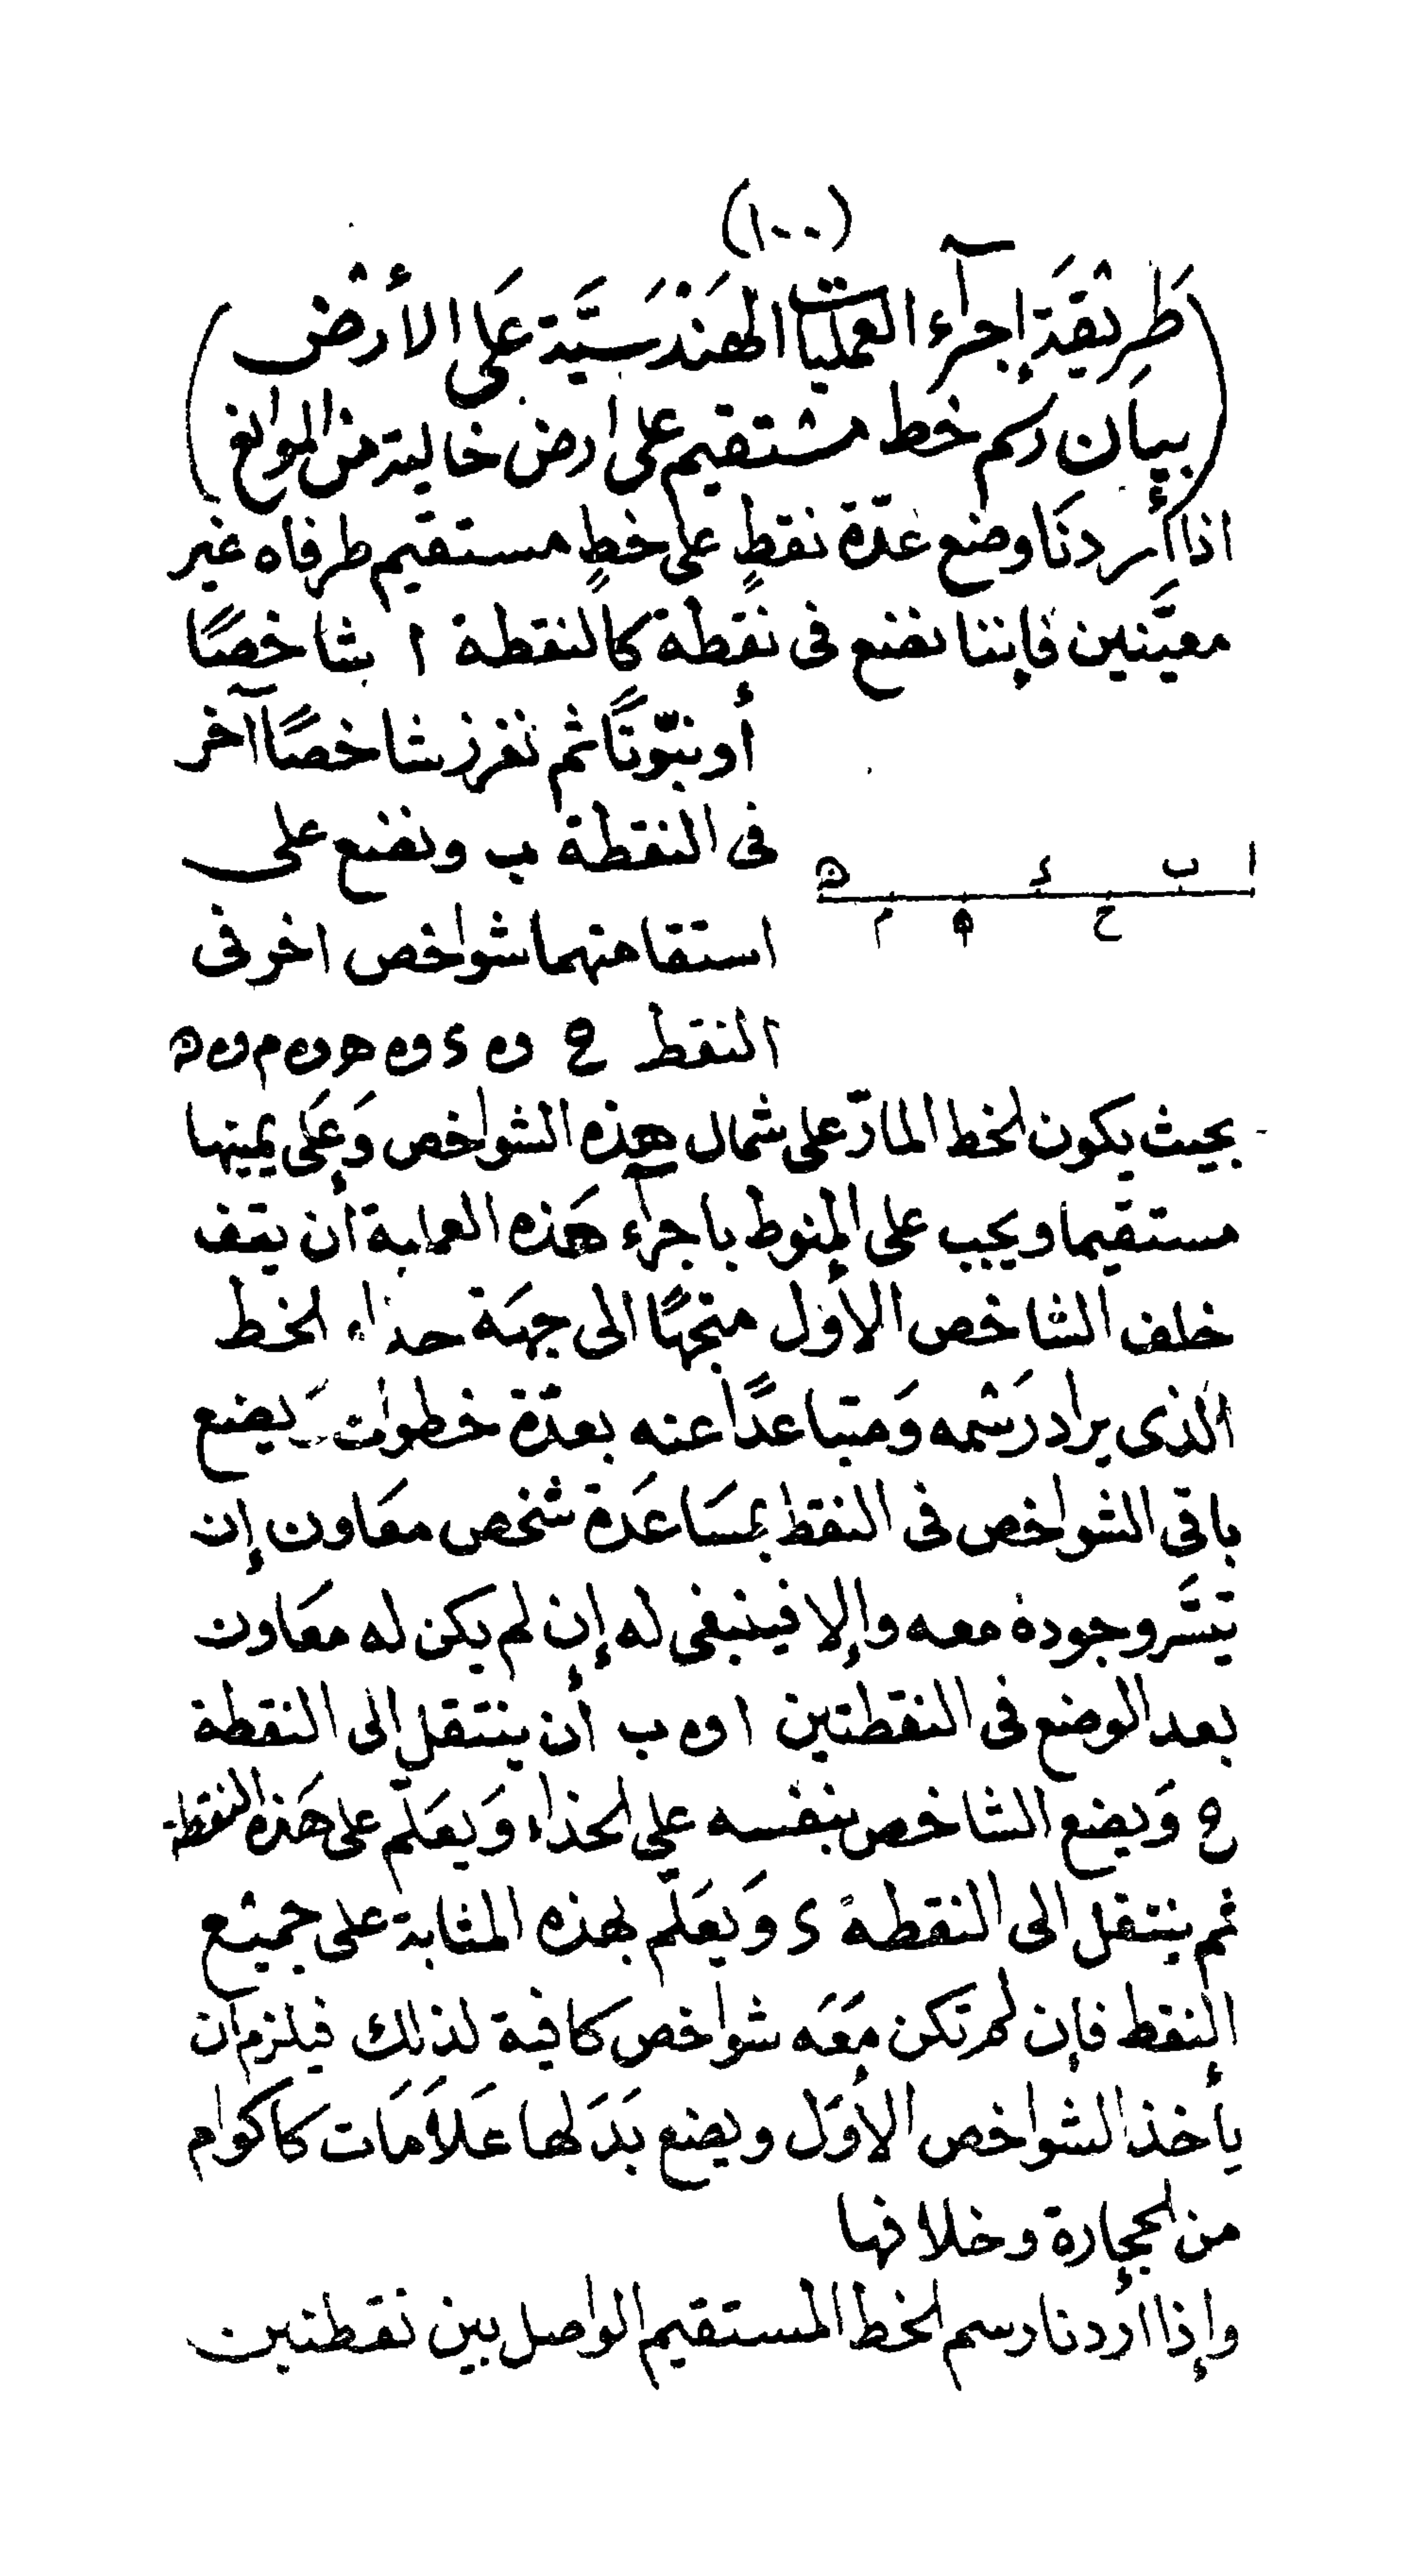 (١٠٠)
(طَرِيْقَة إجرآء العمليات الهَنْدَسَيَّة عَلى الأرْض
بيان رسم خط مشتقيم على ارض خالية من الموانع)
اذا أردنَا وضع عدّة نقطٍ على خطٍ مستقيم طرفاه غير
معيَّنين فإننا نضع فى نقطة كالنقطة ا شاخصًا
أو نبّوتًا ثم نغرز شاخصًا آخر
فى النقطة ب ونضع على
استقامتهما شواخص اخر فى
ا ب ح د ه م ﻫ
النقط ح وه د وه هـ وه م وه ﻫ
بحيث يكون الخط المارّ على شمال هذه الشواخص وَعَلى يمينها
مستقيما ويجب على المنوط بإجرآء هَذه العملية أن يقف
خلف الشاخص الأوّل متجهًا الى جهَة حذاء الخط
الذى يراد رَسْمه وَمتباعدًا عنه بعدّة خطوات وَيضع
باقى الشواخص فى النقط بمسَاعَدة شخص معَاون إن
تيسَّر وجوده معه وإلا فينبغى له إن لم يكن له معَاون
بعد الوضع فى النقطتين ا وه ب أن ينتقل الى النقطة
ح وَيضع الشاخص بنفسه على الحذاء وَيعَلّم على هَذه النقطة
ثم ينتقل الى النقطة د وَيعَلّم بهذه المثابة على جميْع
النقط فإن لم تكن مَعَه شواخص كافية لذلك فيلزم أن
يأخذ الشواخص الأوَل ويضع بَدَلها عَلاَمَات كاكوام
من الحجارة وخلافها
وإذا أردنا رسم الخط المستقيم الواصل بين نقطتين